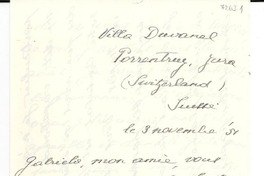 Villa Duvanel
Porrentruy, Jura
(Switzerland)
Suisse
le 3 novembre '51
Gabriela, mon amie, vous